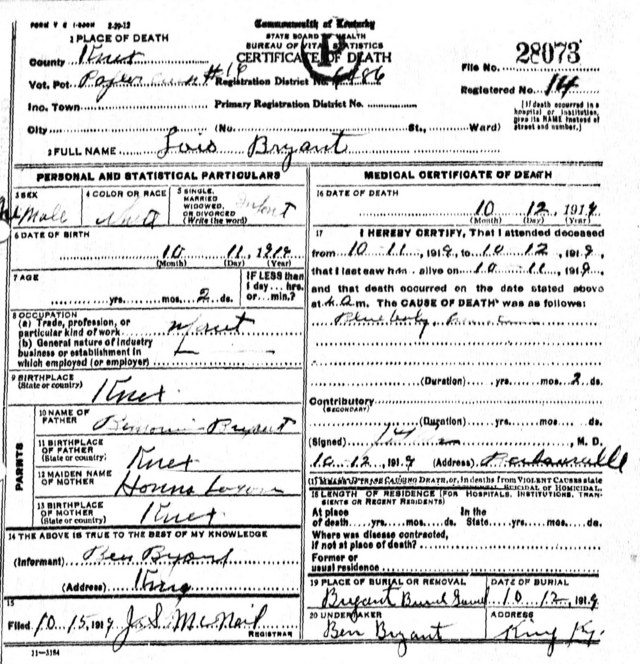 FORM V S 1-500M 2-29-12
Commonwealth of Kentucky
STATE BOARD OF HEALTH
BUREAU OF VITAL STATISTICS
CERTIFICATE OF DEATH
1 PLACE OF DEATH
County Knox
Vot. Pct # 18 Registration District No. 6486
Ino. Town Primary Registration District No.
City (No. St., Ward)
File No. 28073
Registered No. 14
[If death occurred in a hospital or institution, give its NAME instead of street and number.]
2 FULL NAME Lois Bryant
PERSONAL AND STATISTICAL PARTICULARS
3 SEX
Male
4 COLOR OR RACE
5 SINGLE, MARRIED WIDOWED, OR DIVORCED (Write the word) Infant
6 DATE OF BIRTH
10 11, 1919
(Month) (Day) (Year)
7 AGE
yrs. mos. 2 ds.
IF LESS than 1 day ... hrs. or ... min.?
8 OCCUPATION
(a) Trade, profession, or particular kind of work
(b) General nature of industry business or establishment in which employed (or employer)
9 BIRTHPLACE
(State or country) Knox
PARENTS
10 NAME OF FATHER Bryant
11 BIRTHPLACE OF FATHER (State or country) Knox
12 MAIDEN NAME OF MOTHER
13 BIRTHPLACE OF MOTHER (State or country) Knox
14 THE ABOVE IS TRUE TO THE BEST OF MY KNOWLEDGE
(Informant) Ben Bryant
(Address)
15
Filed 10 15, 1919 J.S. McNeil
REGISTRAR
11-3184
MEDICAL CERTIFICATE OF DEATH
16 DATE OF DEATH
10 12, 1919
(Month) (Day) (Year)
17 I HEREBY CERTIFY, That I attended deceased
from 10-11, 1919, to 10 12, 1919,
that I last saw h alive on 10-11, 1919,
and that death occurred on the date stated above
at 4 a.m. The CAUSE OF DEATH was as follows:
(Duration) yrs. mos. 2 ds.
Contributory
(SECONDARY)
(Duration) yrs. mos. ds.
(Signed) , M. D.
10-12, 1919 (Address) Barbourville
18 LENGTH OF RESIDENCE (FOR HOSPITALS, INSTITUTIONS, TRANSIENTS OR RECENT RESIDENTS)
At place of death yrs. mos. ds. In the State yrs. mos. ds.
Where was disease contracted, if not at place of death?
Former or usual residence
19 PLACE OF BURIAL OR REMOVAL
Bryant
DATE OF BURIAL
10 12, 1919
20 UNDERTAKER
Ben Bryant
ADDRESS
Ky.